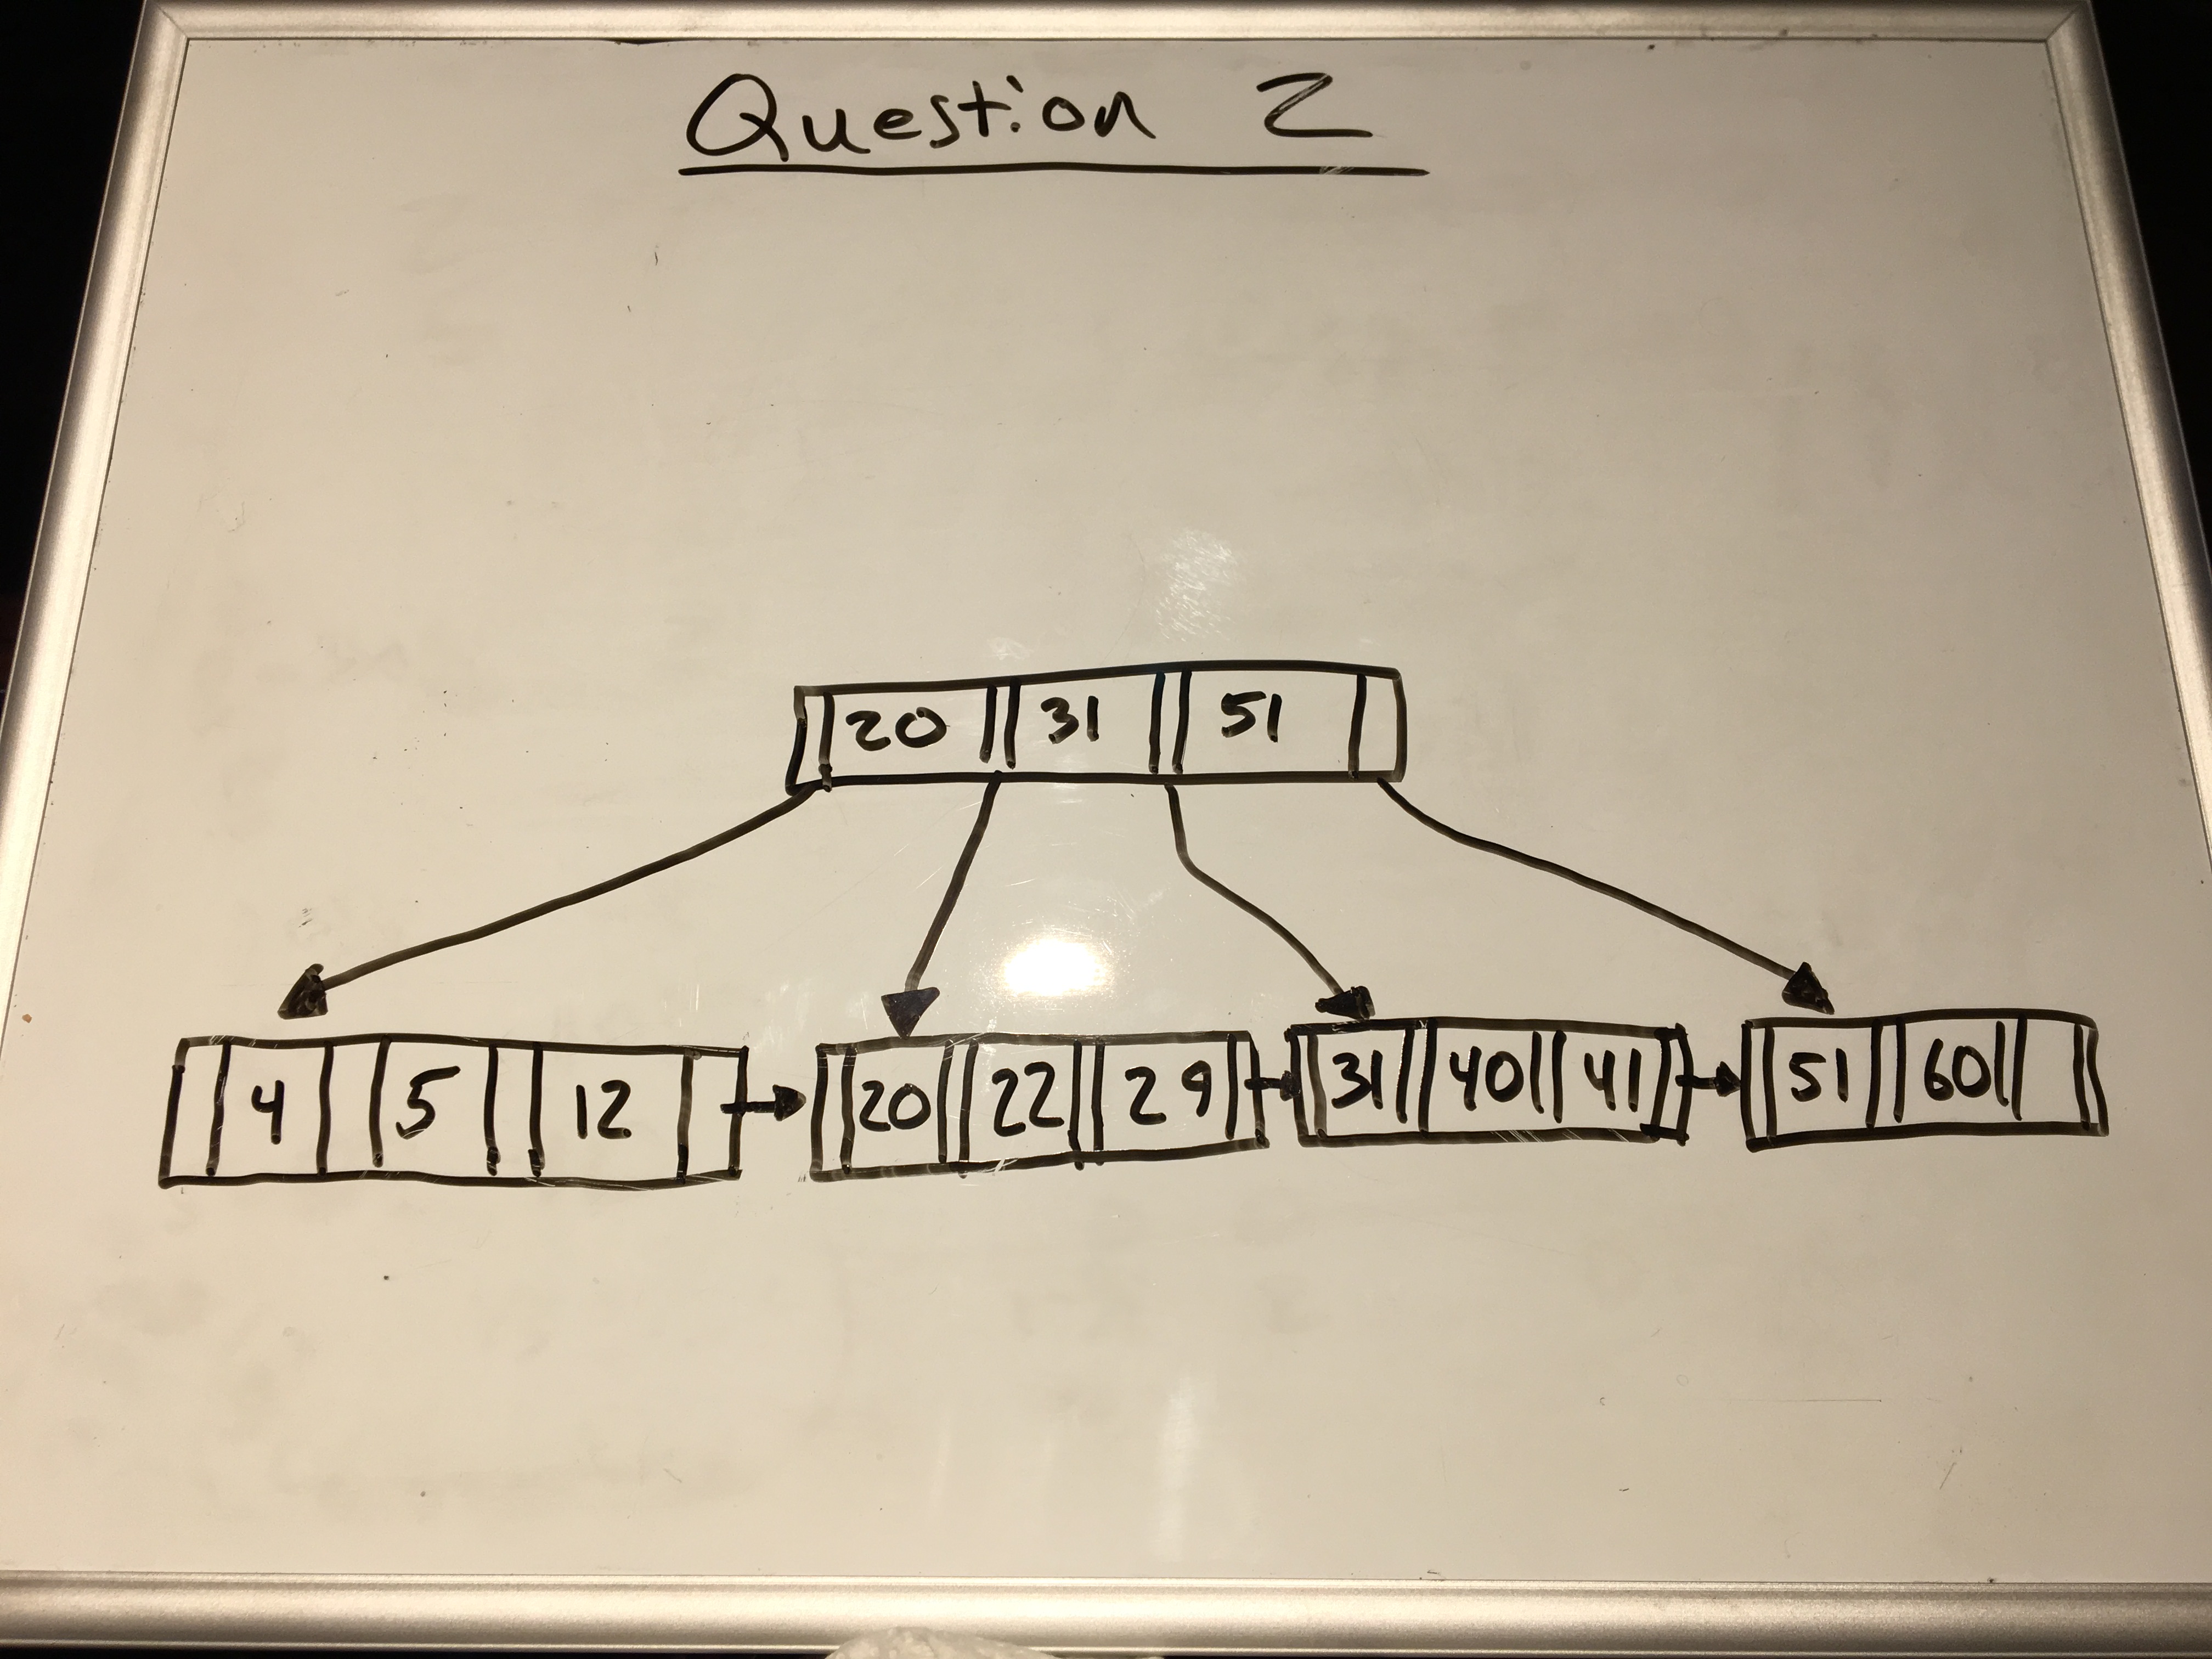 Question 2
20 31 51
4 5 12 20 22 29 31 40 41 51 60